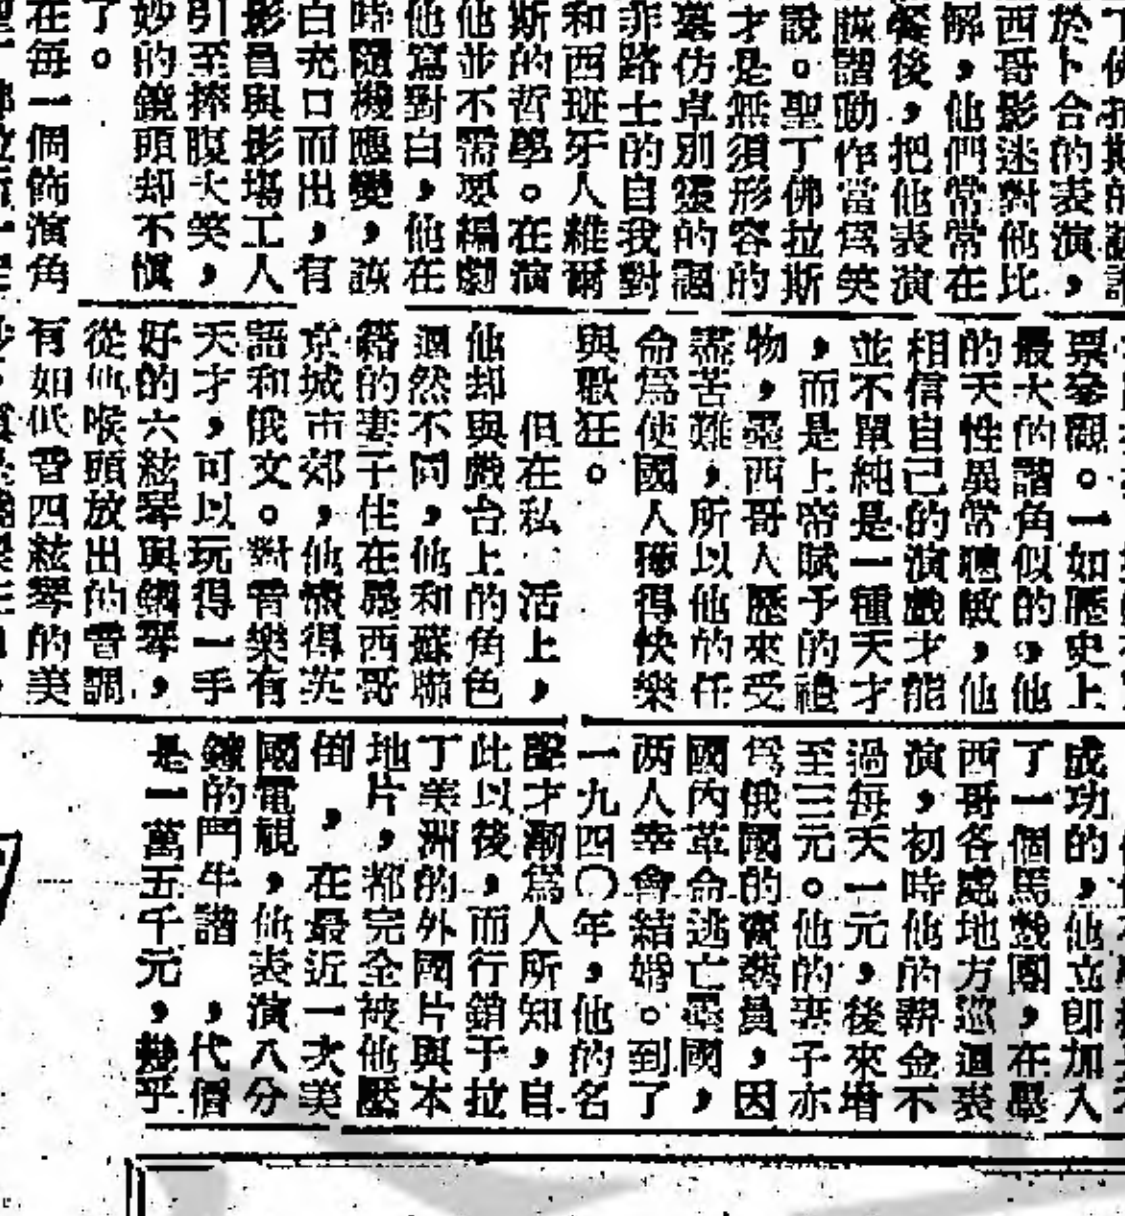 於卜合的表演，
西哥影迷對他比
解，他們常常在
餐後，把他表演
詼諧動作當爲笑
說。聖丁佛拉斯
才是無須形容的
摹仿卓別靈的諷
非路士的自我對
和西班牙人維爾
斯的哲學。在演
他並不需要編劇
他寫對白，他在
時隨機應變，該
白充口而出，有
影員與影塲工人
引至捧腹大笑，
妙的鏡頭却不慎
了。
在每一個飾演角
票參觀。一如歷史上
最大的諧角似的，他
的天性異常聰敏，他
相信自己的演戲才能
並不單純是一種天才
，而是上帝賦予的禮
物，墨西哥人歷來受
盡苦難，所以他的任
命爲使國人獲得快樂
與歡狂。
但在私 活上，
他却與戲台上的角色
迥然不同，他和蘇聯
籍的妻子住在墨西哥
京城市郊，他懂得英
語和俄文。對音樂有
天才，可以玩得一手
好的六絃琴與鋼琴，
從他喉頭放出的音調
有如低音四絃琴的美
成功的，他立卽加入
了一個馬戲團，在墨
西哥各處地方巡迴表
演，初時他的薪金不
過每天一元，後來增
至三元。他的妻子亦
爲俄國的賣藝員，因
國內革命逃亡墨國，
两人幸會結婚。到了
一九四〇年，他的名
聲才漸爲人所知，自
此以後，而行銷于拉
丁美洲的外國片與本
地片，都完全被他壓
倒，在最近一次美
國電視，他表演八分
鐘的鬥牛諧 ，代價
是一萬五千元，幾乎